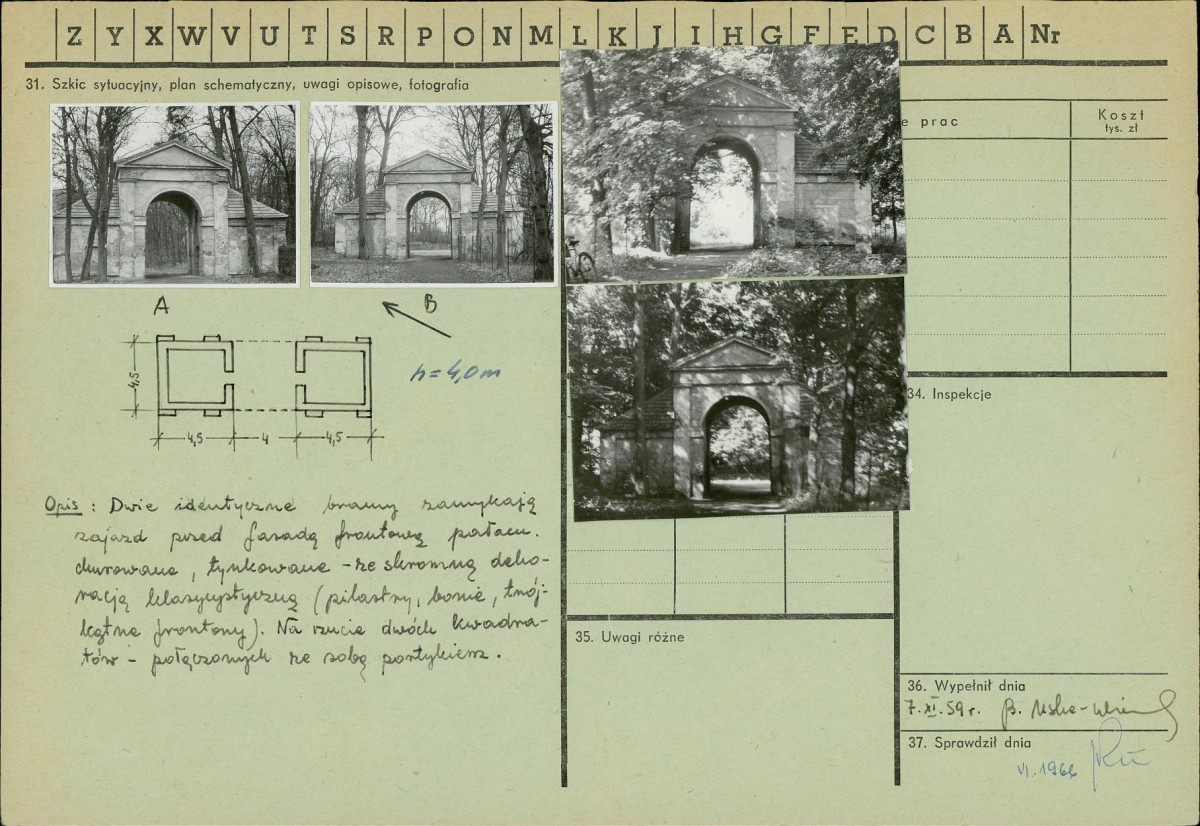 Z Y X W V U T S R P O N M L K J I H G F E D C B A Nr
31. Szkic sytuacyjny, plan schematyczny, uwagi opisowe, fotografia
e prac
Koszt
tys. zł
A
B
4,5
h = 4,0 m
4,5 4 4,5
34. Inspekcje
Opis : Dwie identyczne bramy zamykają
zajazd przed fasadą frontową pałacu.
Murowane, tynkowane - ze skromną deko-
racją klasycystyczną (pilastry, bonie, trój-
kątne frontony). Na rzucie dwóch kwadra-
tów - połączonych ze sobą portykiem.
35. Uwagi różne
36. Wypełnił dnia
7.XI.59 r. B.
37. Sprawdził dnia
VI.1966